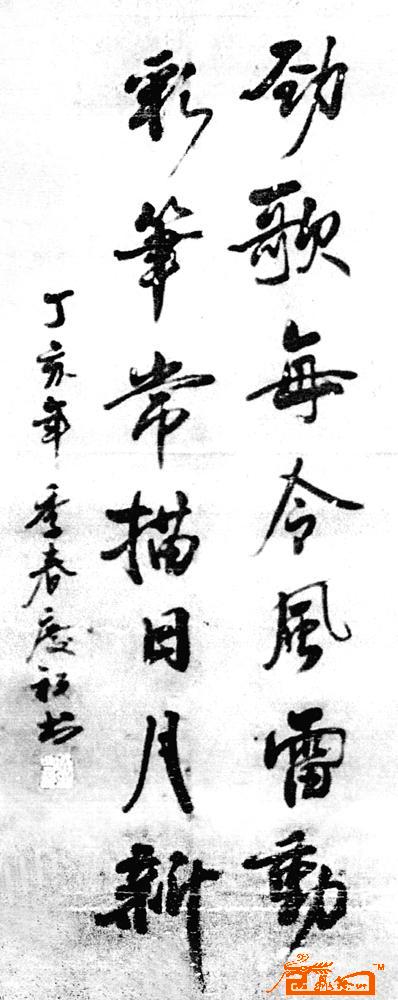 劲歌每令風雷動
彩筆常描日月新
丁亥年季春慶祝书